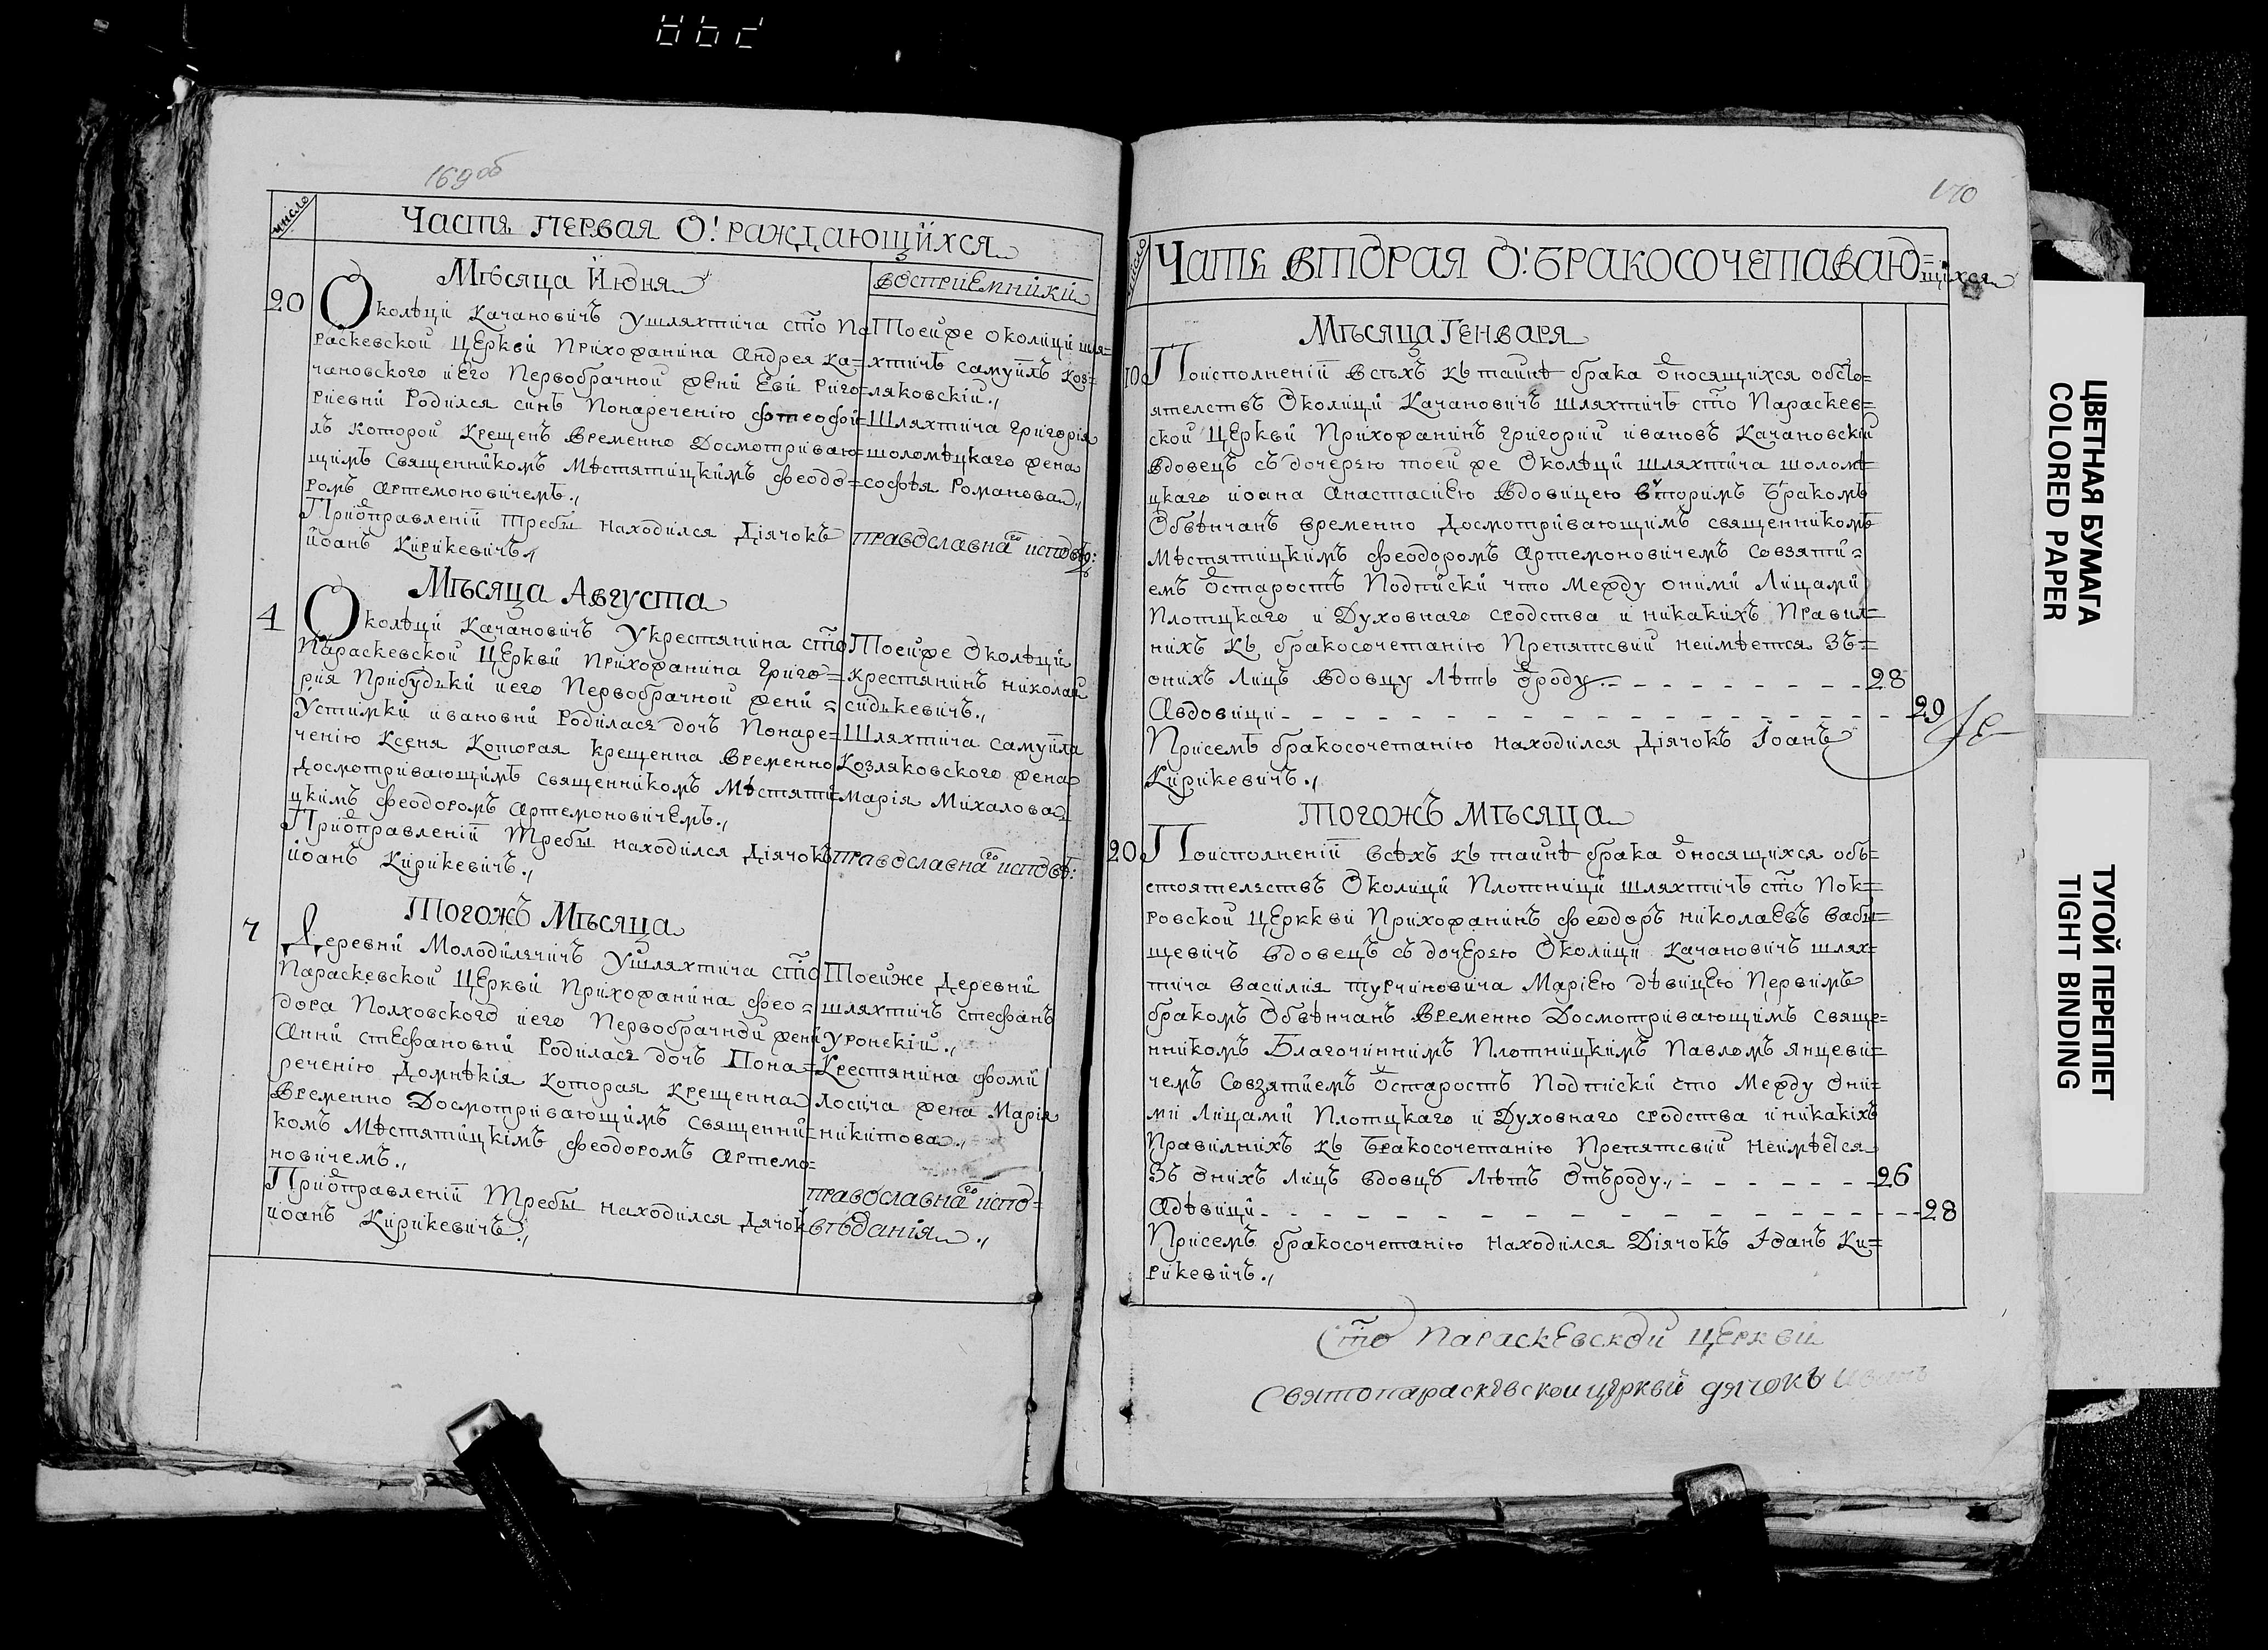 169об
число
Часть первая О! раждающихся
Мѣсяца Июня
востриемники
20
Околѣци Качановичъ Ушляхтича сто Па
раскевской Церкви Прихожанина Андрея ка=
чановского иЕго Первобрачной жени Еви Риго=
риевни Родился синъ Понареченію фтеофи=
лъ которой Крещенъ Временно Досмотриваю=
щимъ Священникомъ Мѣстятицкимъ феодо=
ромъ Артемоновичемъ.,
Приотправленіи Требы находился Діячокъ
иоанъ Кирикевичъ.,
Тоейже околици шля=
хтичъ Самуилъ коз=
ляковскіи.,
Шляхтича григорія
шоломѣцкаго жена
софѣя Романова.,
православнаго исповѣ:
Мѣсяца Августа
4
Околѣци Качановичъ Укрестянина сто
Параскевской Церкви прихожанина Григо=
рия Прибудки иего Первобрачной жени =
Устимки ивановни Родиласѣ дочъ Понаре=
ченію Ксеня Которая Крещенна Временно
досмотривающимъ священникомъ Мѣстяти=
цкимъ феодоромъ артемоновичемъ.,
Приотправленіи Требы находился Діячокъ
иоанъ Кирикевичъ.,
Тоейже Околѣци
крестянинъ николай
сидькевичъ.,
Шляхтича Самуила
Козляковского жена
Марія Михалова
православнаго исповѣ:
Тогожъ Мѣсяца
7
Деревни Молодилячичъ Ушляхтича сто
Параскевской Церкви Прихожанина фео=
дора Полховского иего Первобрачной жени
Анни стефановни Родиласѣ дочъ Пона=
реченію Домнѣкія которая Крещенна
Временно Досмотривающимъ Священни=
комъ Мѣстятицкімъ феодоромъ Артемо=
новичемъ.,
Приотправленіи Требы находился Дячокъ
иоанъ Кирикевичъ.,
Тоейже Деревни
шляхтичъ стефанъ
уронскіи.,
Крестянина фоми
Лосича жена Марія
никитова.,
православнаго испо=
вѣданія.,
170
число
Чать вторая О! бракосочетаваю=
щихся
Мѣсяца Генваря
10
Поисполненіи Всѣхъ къ таинѣ брака относящихся обсто=
ятелствъ Околици Качановичъ шляхтичъ сто Параскев=
ской Церкви Прихожанинъ григорий ивановъ Качановскій
вдовецъ съ дочерью тоей же Околѣци шляхтича шоломѣ=
цкаго иоана Анастасиею Вдовицею вторимъ Бракомъ
Обвѣнчанъ временно Досмотривающимъ священникомъ
Мѣстятицкимъ феодоромъ Артемоновичемъ Совзяти=
емъ отстаростъ Подписки что между оними Лицами
Плотцкаго и Духовнаго сродства и никакихъ Правил=
нихъ къ бракосочетанію Препятсвий неимѣется Зъ=
онихъ Лицъ вдовцу Лѣтъ отроду. 28
Авдовици 29
Присемъ бракосочетанію находился Діячокъ Іоанъ
Кирикевичъ.,
Тогожъ Мѣсяца
20
Поисполненіи всѣхъ къ таинѣ брака относящихся объ=
стоятельствъ Околици Плотници шляхтичъ сто Пок=
ровской Церккви Прихожанинъ феодоръ николаевъ бабы=
щевичъ вдовецъ съ дочерею Околици Качановичъ шлях=
тича василия турчиновича Маріею дѣвицею Первимъ
бракомъ Обвѣнчанъ Временно Досмотривающимъ Свяще=
нникомъ Благочиннимъ Плотницкимъ Павломъ янцеви=
чемъ Совзятиемъ отстаростъ Подписки сто Между они=
ми Лицами Плотцкаго и Духовнаго сродства иникакіхъ
Правилнихъ къ Бракосочетанію Препятсвий неимѣется
Зъ Онихъ Лицъ вдовцу Лѣтъ Отъроду., 26
Адѣвици 28
Присемъ бракосочетанію находился Діячокъ Іоанъ Ки=
рикевичъ.,
Сто Параскевской Церкви
Святопараскевской церквй дячокъ Иванъ
ЦВЕТНАЯ БУМАГА
COLORED PAPER
ТУГОЙ ПЕРЕПЛЕТ
TIGHT BINDING